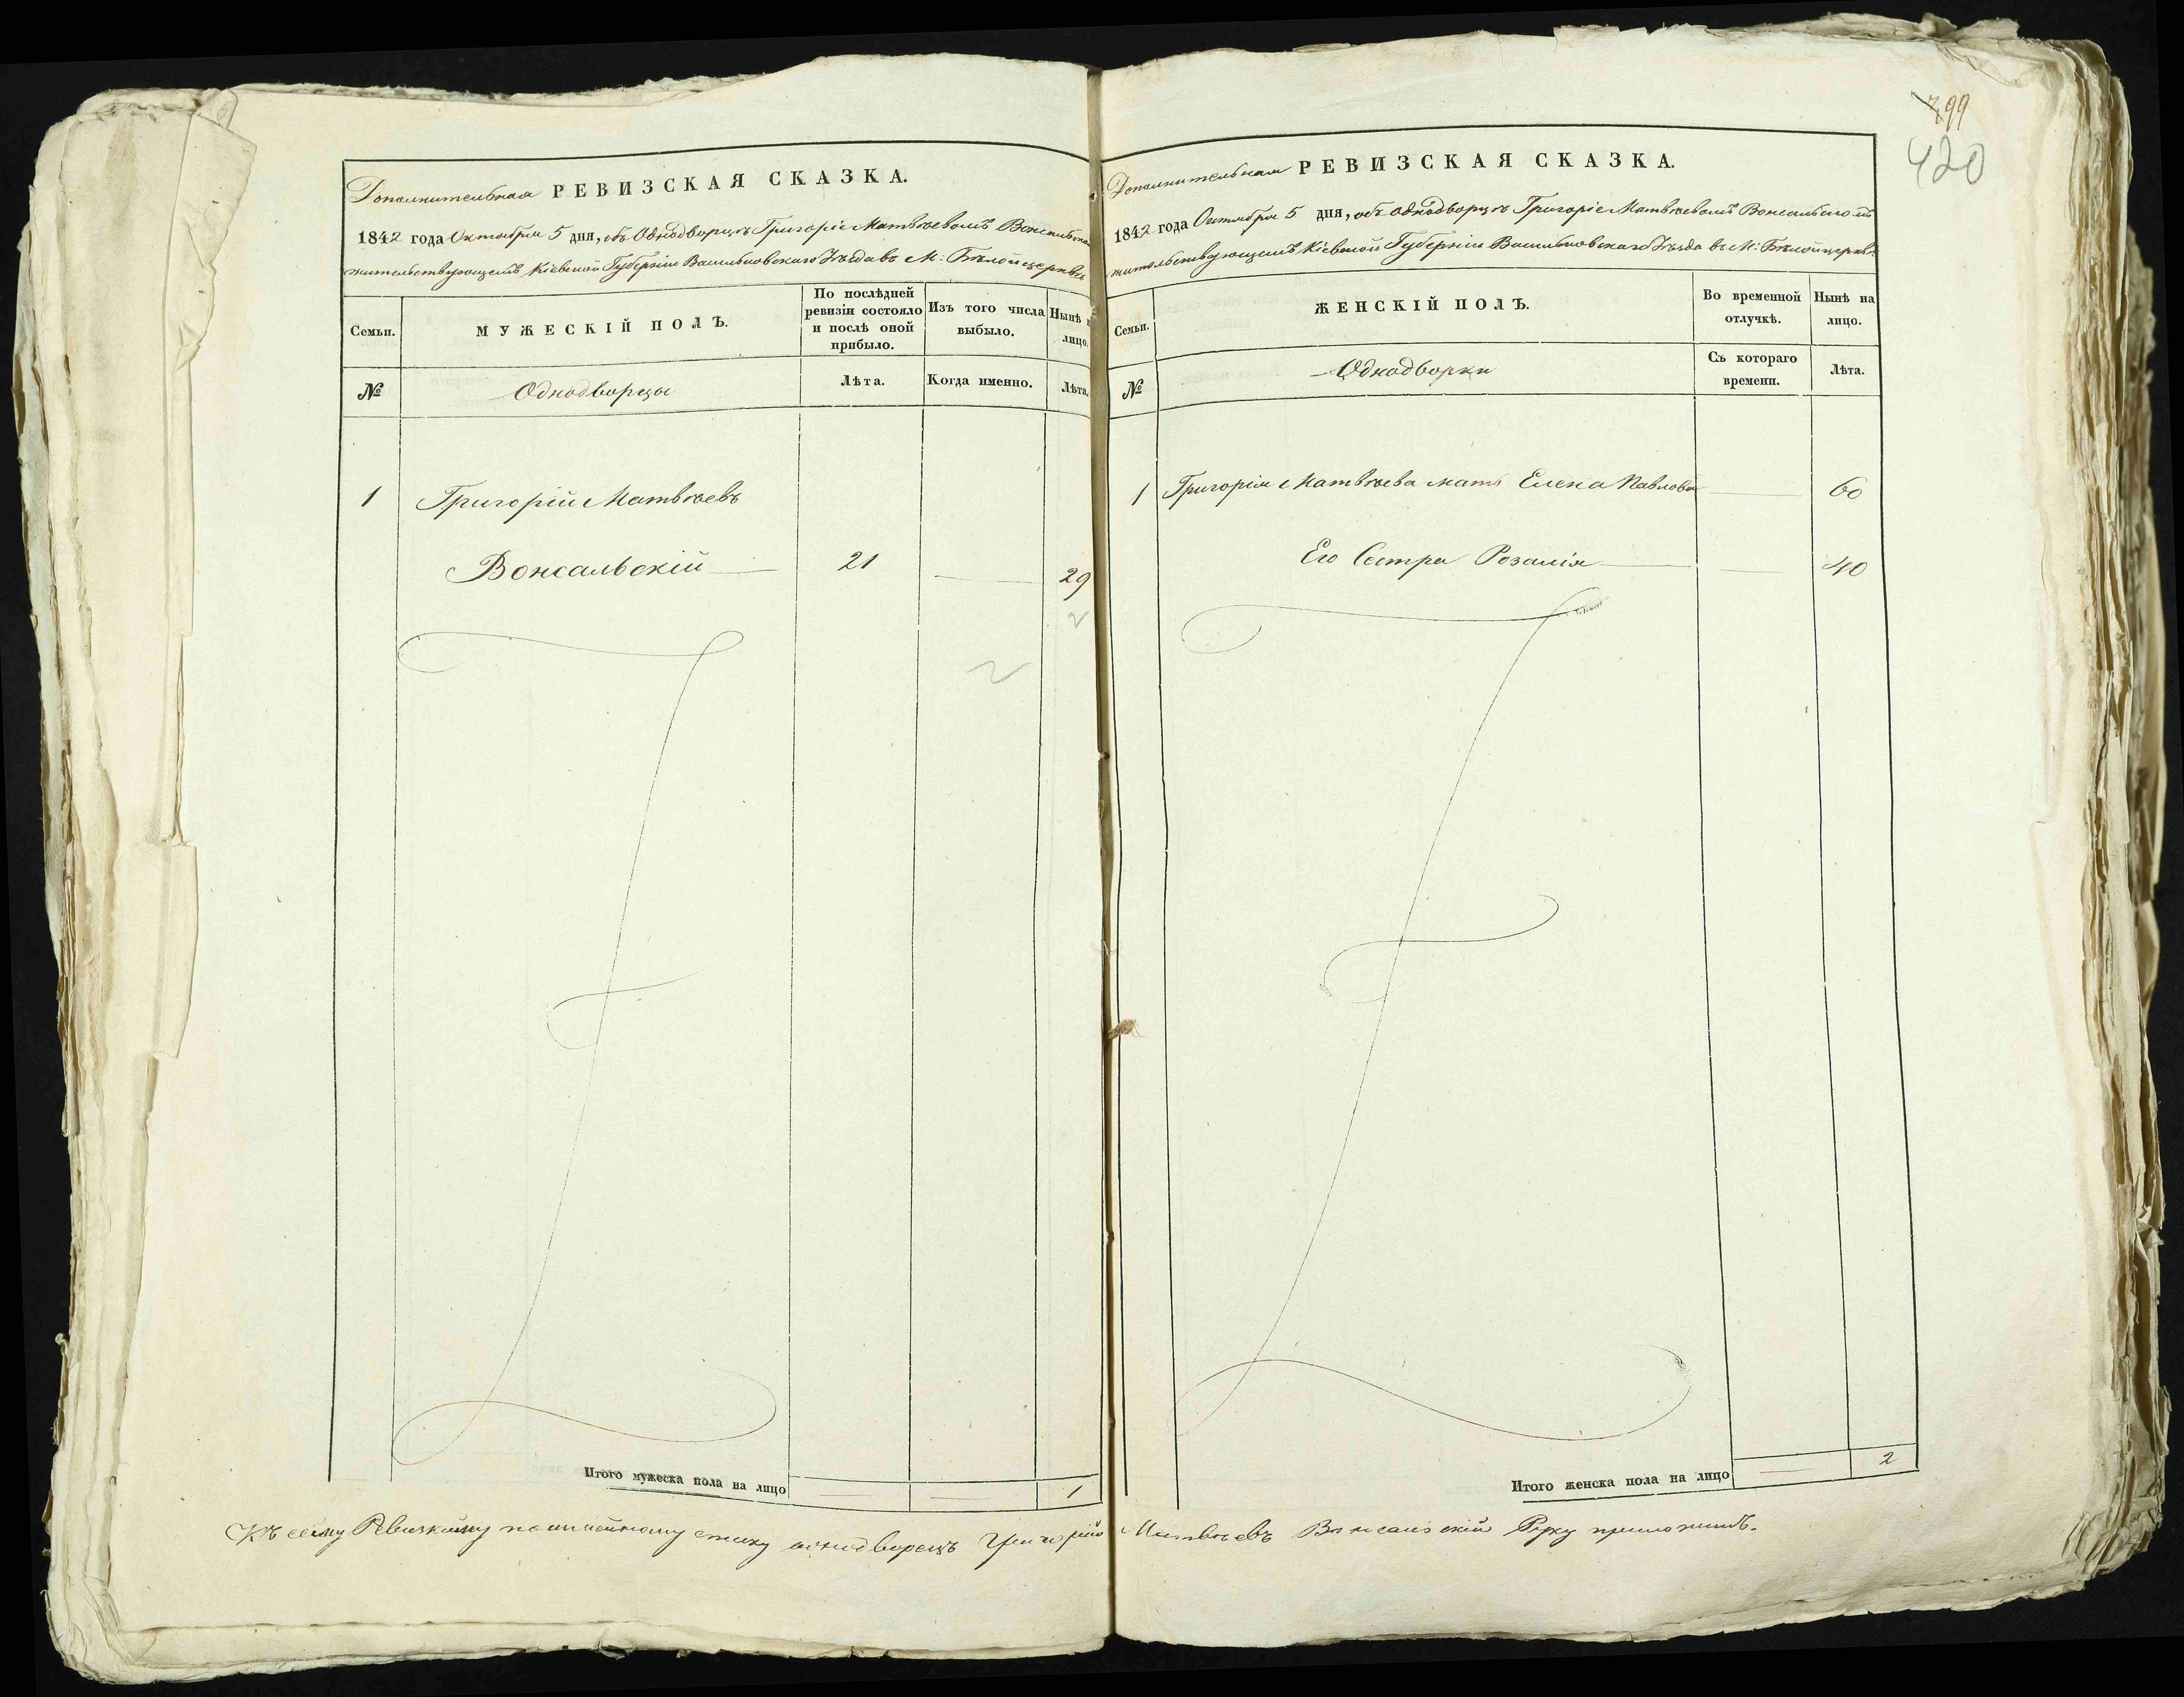 Дополнительная РЕВИЗСКАЯ СКАЗКА.
1842 года Октября 5 дня, объ Однодворцѣ Григоріе Матвѣевомъ Вонсальском
жительствующемъ Кіевской Губерніи Васильковскаго Уѣзда въ М: Бѣлойцеркве
Семьи.
МУЖЕСКІЙ ПОЛЪ.
По послѣдней
ревизіи состояло
и послѣ оной
прибыло.
Изъ того числа
выбыло.
Нынѣ
лицо.
№
Однодворцы
Лѣта.
Когда именно.
Лѣта.
1 Григорій Матвѣевъ
Вонсальскій 21 29
Итого мужеска пола на лицо 1
499
420
Дополнительная РЕВИЗСКАЯ СКАЗКА.
1842 года Октября 5 дня, объ Однодворцѣ Григоріе Матвѣевомъ Вонсальскомъ
жительствующемъ Кіевской Губерніи Васильковскаго Уѣзда въ М: Бѣлойцеркве
Семьи.
ЖЕНСКІЙ ПОЛЪ.
Во временной
отлучкѣ.
Нынѣ на
лицо.
№
Однодворки
Съ котораго
времени.
Лѣта.
1 Григорія Матвѣева мать Елена Павлова 60
Его Сестра Розалія 40
Итого женска пола на лицо 2
Къ сему Ревизкому однодворецъ Григорій Матвѣевъ Вонсальскій Руку приложилъ.